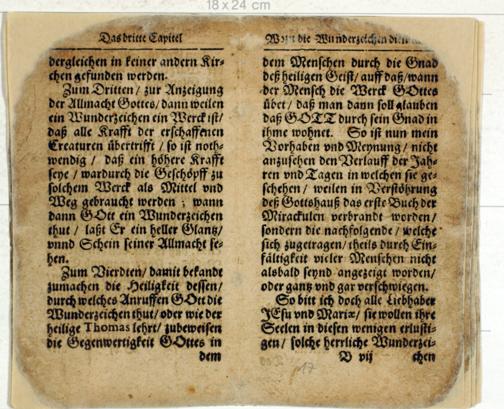 18 x 24 cm
Das dritte Capitel
dergleichen in keiner andern Kir-
chen gefunden werden.
Zum Dritten / zur Anzeigung
der Allmacht Gottes / dann weilen
ein Wunderzeichen ein Werck ist /
daß alle Krafft der erschaffenen
Creaturen übertrifft / so ist noth-
wendig / daß ein höhere Krafft
seye / wardurch die Geschöpff zu
solchem Werck als Mittel vnd
Weg gebraucht werden ; wann
dann GOtt ein Wunderzeichen
thut / laßt Er ein heller Glantz /
vnnd Schein seiner Allmacht se-
hen.
Zum Vierdten / damit bekandt
zumachen die Heiligkeit dessen /
durch welches Anruffen GOtt die
Wunderzeichen thut / oder wie der
heilige Thomas lehrt / zubeweisen
die Gegenwertigkeit GOttes in
dem
die Wunderzeichen
dem Menschen durch die Gnad
deß heiligen Geist / auff daß / wann
der Mensch die Werck GOttes
übet / daß man dann soll glauben
daß GOTT durch sein Gnad in
ihme wohnet. So ist nun mein
Vorhaben vnd Meynung / nicht
anzusehen den Verlauff der Jah-
ren vnd Tagen in welchen sie ge-
schehen / weilen in Verstöhrung
deß Gottshauß das erste Buch der
Mirackulen verbrandt worden /
sondern die nachfolgende / welche
sich zugetragen / theils durch Ein-
fältigkeit vieler Menschen nicht
alsbald seynd angezeigt worden /
oder gantz vnd gar verschwiegen.
So bitt ich doch alle Liebhaber
JEsu vnd Mariæ / sie wollen ihre
Seelen in diesen wenigen erlusti-
gen / solche herrliche Wunderzei-
D vij chen
17